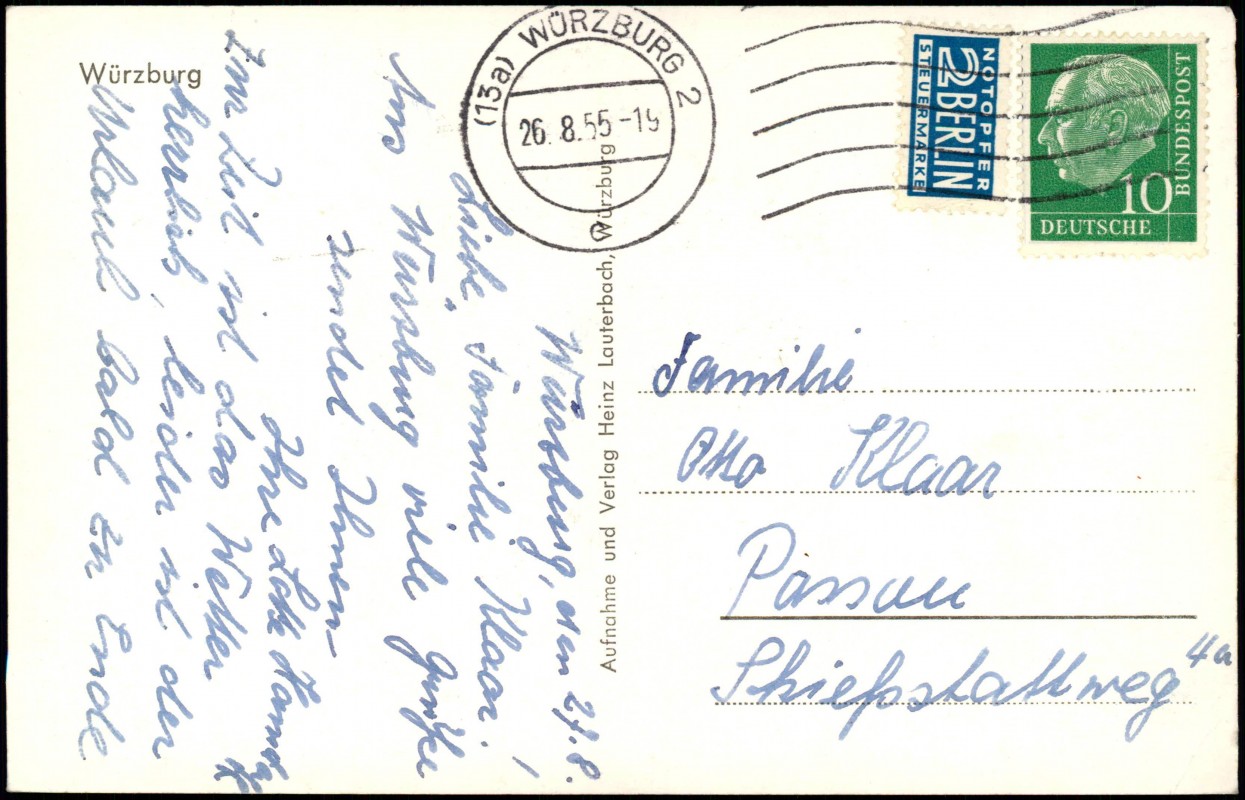 Würzburg
(13a) WÜRZBURG 2
26. 8. 55 - 19
NOTOPFER
2 BERLIN
STEUERMARKE
DEUTSCHE
BUNDESPOST
10
Würzburg, den 27.8.
Liebe Familie Klaar!
Aus Würzburg viele Grüße
sendet Ihnen
Ihre Lotte
Zur Zeit ist das Wetter
herrlich, leider ist der
Urlaub bald zu Ende
Aufnahme und Verlag Heinz Lauterbach, Würzburg
Familie
Otto Klaar
Passau
Schießstattweg 4a